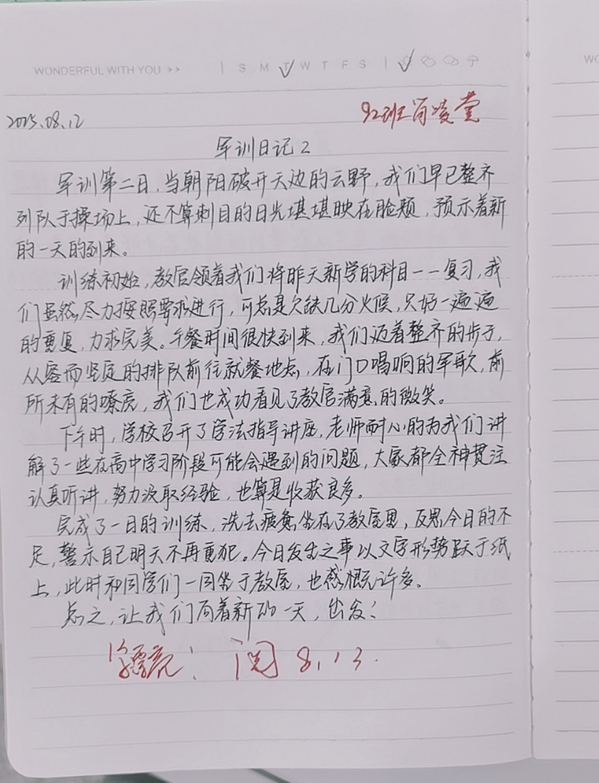 WONDERFUL WITH YOU >> | S M T W T F S |
2025.08.12
92班 肖凌萱
军训日记2
军训第二日,当朝阳破开天边的云野,我们早已整齐
列队于操场上,还不算刺目的日光堪堪映在脸颊,预示着新
的一天的到来。
训练初始,教官领着我们将昨天新学的科目一一复习,我
们虽然尽力按照要求进行,可总是欠缺几分火候,只好一遍遍
的重复,力求完美。午餐时间很快到来,我们迈着整齐的步子,
从容而坚定的排队前往就餐地点,在门口唱响的军歌,前
所未有的嘹亮,我们也成功看见了教官满意的微笑。
下午时,学校召开了学法指导讲座,老师耐心的为我们讲
解了一些在高中学习阶段可能会遇到的问题,大家都全神贯注
认真听讲,努力汲取经验,也算是收获良多。
完成了一日的训练,洗去疲惫坐在了教室里,反思今日的不
足,警示自己明天不再重犯。今日发生之事以文字形势跃于纸
上,此时和同学们一同坐于教室,也感慨许多。
总之,让我们向着新的一天,出发!
阅 8.13.